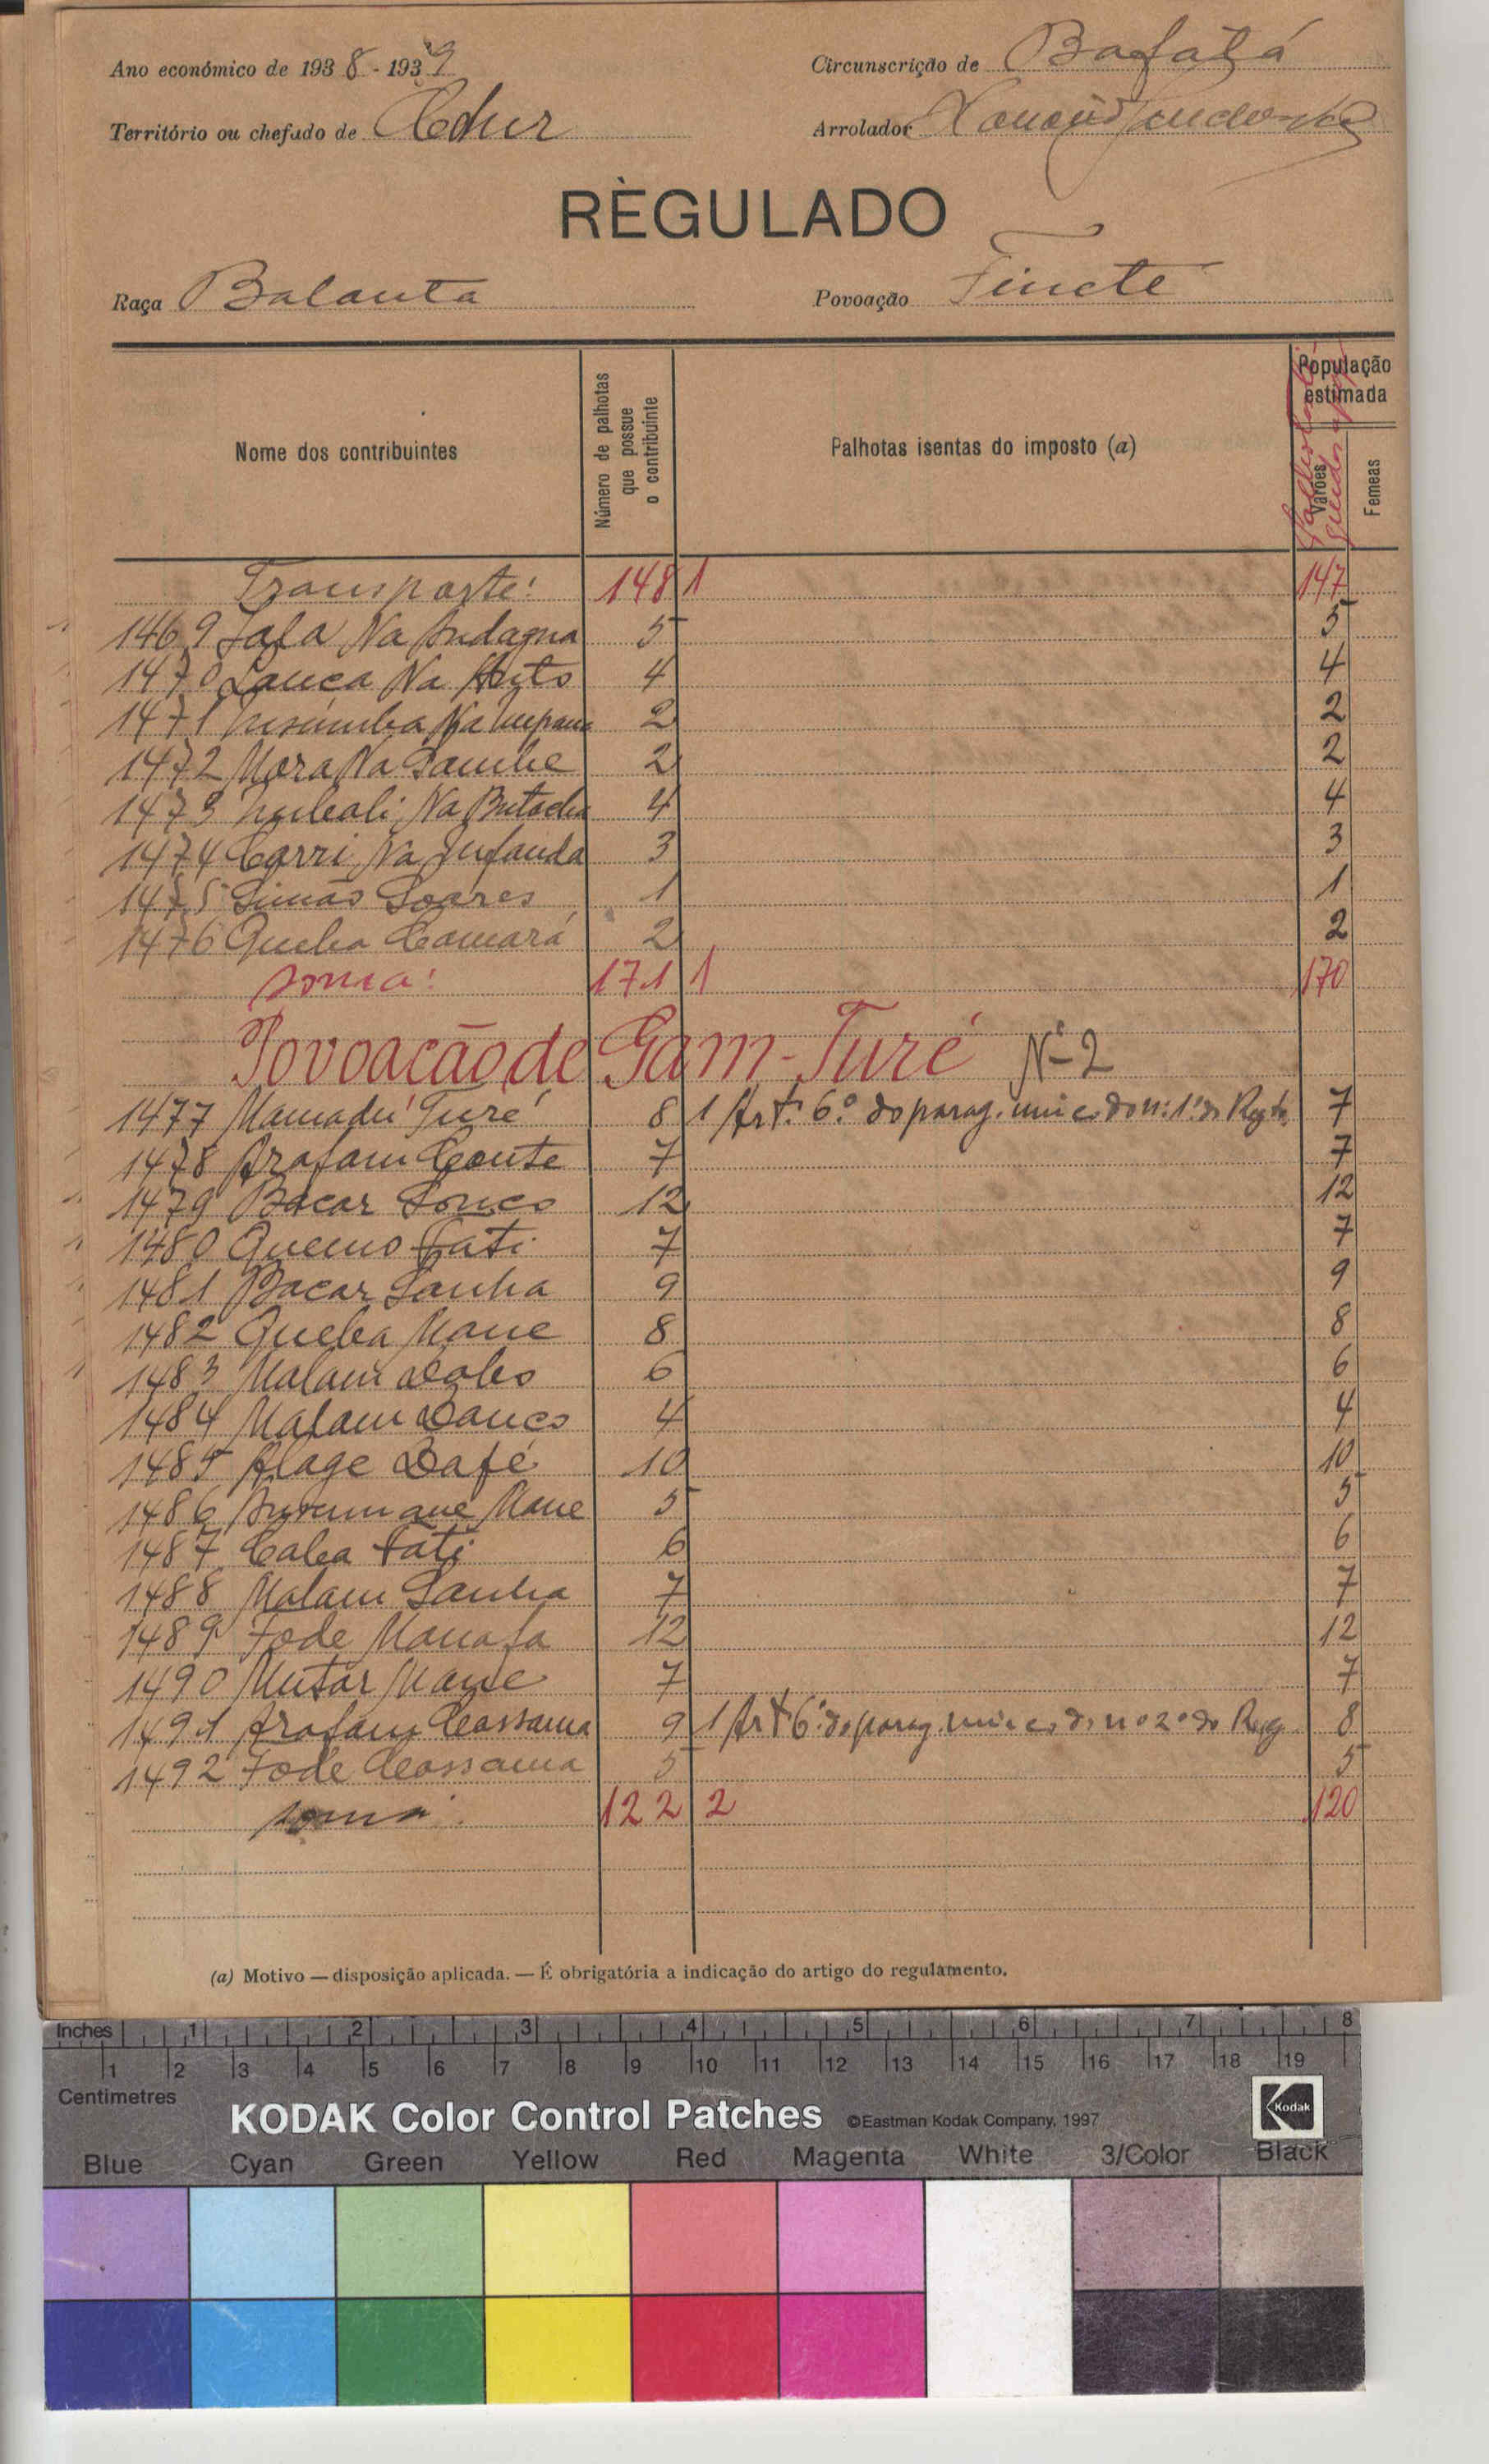 Ano económico de 1938 - 1939
Circunscrição de Bafatá
Território ou chefado de
Arrolador
RÈGULADO
Raça Balanta
Povoação Finete
Nome dos contribuintes
Número de palhotas que possue o contribuinte
Palhotas isentas do imposto (a)
População estimada
Varões
Femeas
Transporte: 148 1 147
1469 Na 5 5
1470 Na 4 4
1471 Na 2 2
1472 Na 2 2
1473 Na 4 4
1474 Na 3 3
1475 Simão Soares 1 1
1476 Queba Camará 2 2
soma: 171 1 170
Povoação de Gam-Turé Nº 2
1477 Mamadú Turé 8 1 Art. 6.º do parag. unico do n.º 1.º do 7
1478 Arafam Conte 7 7
1479 Bacar Sonco 12 12
1480 Quemo Fati 7 7
1481 Bacar Sanha 9 9
1482 Queba Mane 8 8
1483 Malam 6 6
1484 Malam 4 4
1485 Alage Dafé 10 10
1486 Mane 5 5
1487 Caba Fati 6 6
1488 Malam Sanha 7 7
1489 Fode 12 12
1490 Mutar Mane 7 7
1491 Arafam Cassama 9 1 Art 6.º do parag. unico do nº 2º do Reg. 8
1492 Fode Cassama 5 5
soma 122 2 120
(a) Motivo — disposição aplicada. — É obrigatória a indicação do artigo do regulamento.
Inches 1 2 3 4 5 6 7 8
1 2 3 4 5 6 7 8 9 10 11 12 13 14 15 16 17 18 19
Centimetres
KODAK Color Control Patches ©Eastman Kodak Company, 1997 Kodak
Blue Cyan Green Yellow Red Magenta White 3/Color Black